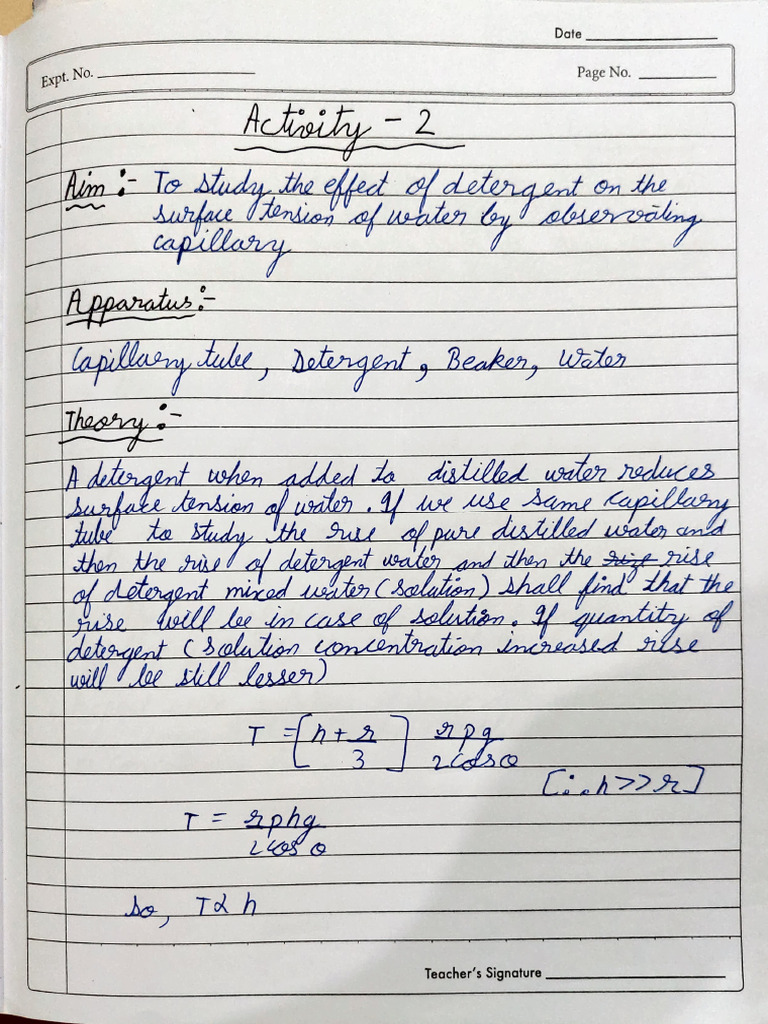 Date
Expt. No.
Page No.
Activity - 2
Aim :- To study the effect of detergent on the
surface tension of water by observating
capillary
Apparatus :-
Capillary tube, Detergent, Beaker, Water
Theory :-
A detergent when added to distilled water reduces
surface tension of water. If we use same capillary
tube to study the rise of pure distilled water and
then the rise of detergent water and then the rize rise
of detergent mixed water (solution) shall find that the
rise will be in case of solution. If quantity of
detergent (solution concentration increased rise
will be still lesser)
T = [h + r/3] rρg/2cosθ
[∵ h>>r]
T = rρhg/2cosθ
So, T ∝ h
Teacher's Signature